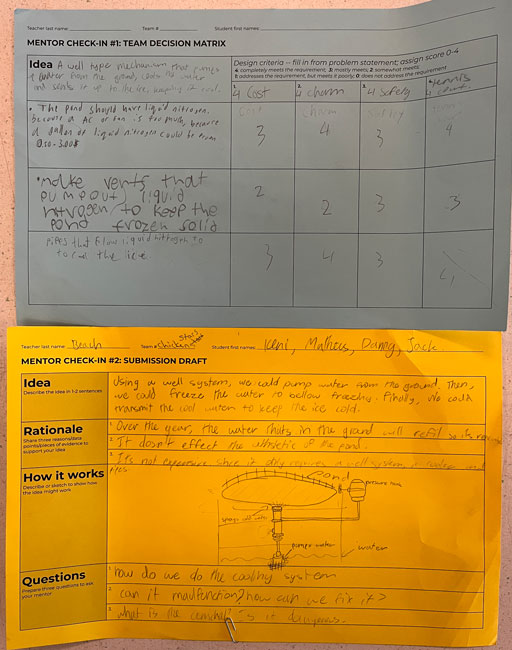 Teacher last name: Team # Student first names:
MENTOR CHECK-IN #1: TEAM DECISION MATRIX
Idea A well type mechanism that pumps
water from the ground, cools the water
and sends it up to the ice, keeping it cool.
Design criteria -- fill in from problem statement; assign score 0-4
4: completely meets the requirement; 3: mostly meets; 2: somewhat meets
1: addresses the requirement, but meets it poorly; 0: does not address the requirement
1. 4 Cost
2. 4 charm
3. 4 Safety
4.
Cost charm Safety
• The pond should have liquid nitrogen,
because a AC or fan is too much, because
a gallon of liquid nitrogen could be from
3 4 3 4
• make vents that
pump out liquid
nitrogen to keep the
pond frozen solid
2 2 3 3
Pipes that flow liquid nitrogen to
to cool the ice
3 4 3
Teacher last name: Beach Team # Stars Student first names: Keni, Matheus, Danny, Jack
MENTOR CHECK-IN #2: SUBMISSION DRAFT
Idea
Describe the idea in 1-2 sentences
Using a well system, we could pump water from the ground. Then,
we could freeze the water to bellow freezing. Finally, we could
transmit the cool water to keep the ice cold.
Rationale
Share three reasons/data
points/pieces of evidence to
support your idea
1. Over the year, the water thats in the ground will refil so its
2. It doesn't effect the of the pond.
3. It's not expensive since it only requires a well system, and
pipes.
How it works
Describe or sketch to show how
the idea might work
Pond
pressure tank
water
pumps water
Questions
Prepare three questions to ask
your mentor
1. how do we do the cooling system
2. can it malfunction? how can we fix it?
3. what is the is it dangerous.